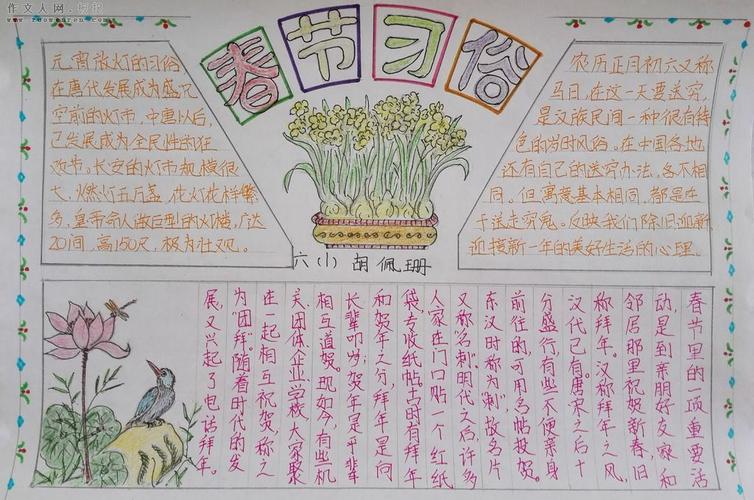 作文人网
春节习俗
元宵放灯的习俗
在唐代发展成为盛况
空前的灯市，中唐以后，
已发展成为全民性的狂
欢节。长安的灯市规模很
大，燃灯五万盏，花灯花样繁
多，皇帝命人做巨型的灯楼，广达
20间，高150尺，极为壮观。
农历正月初六又称
马日，在这一天要送穷，
是汉族民间一种很有特
色的岁时风俗。在中国各地
还有自己的送穷办法，各不相
同。但寓意基本相同，都是在
于送走穷鬼。反映我们除旧迎新，
迎接新一年的美好生活的心理。
六(1) 胡佩珊
春节里的一项重要活
动，是到亲朋好友家和
邻居那里祝贺新春，旧
称拜年。汉称拜年之风，
汉代已有。唐宋之后十
分盛行，有些不便亲身
前往的，可用名帖投贺。
东汉时称为“刺”，故名片
又称“名刺”。明代之后，许多
人家在门口贴一个红纸
袋专收纸帖。古时有拜年
和贺年之分，拜年是向
长辈叩岁；贺年是平辈
相互道贺。现如今，有些机
关、团体、企业、学校，大家聚
在一起相互祝贺，称之
为“团拜”。随着时代的发
展，又兴起了电话拜年。